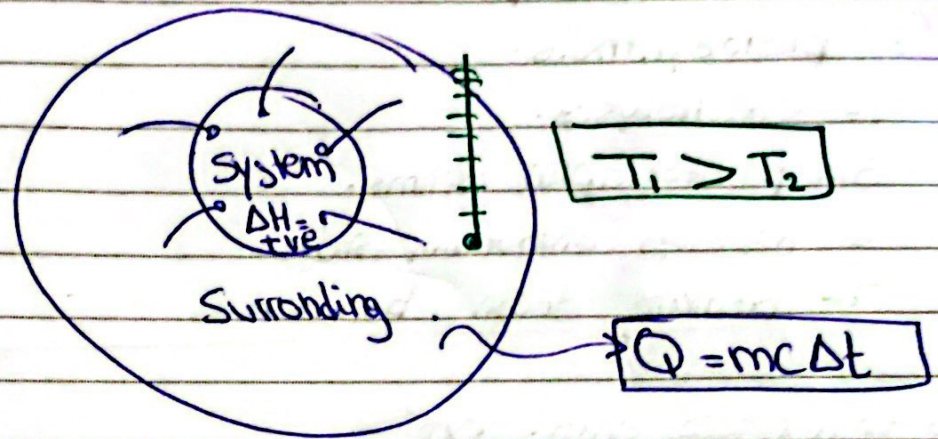 System
ΔH=
+ve
Surronding
T₁ > T₂
Q = mcΔt